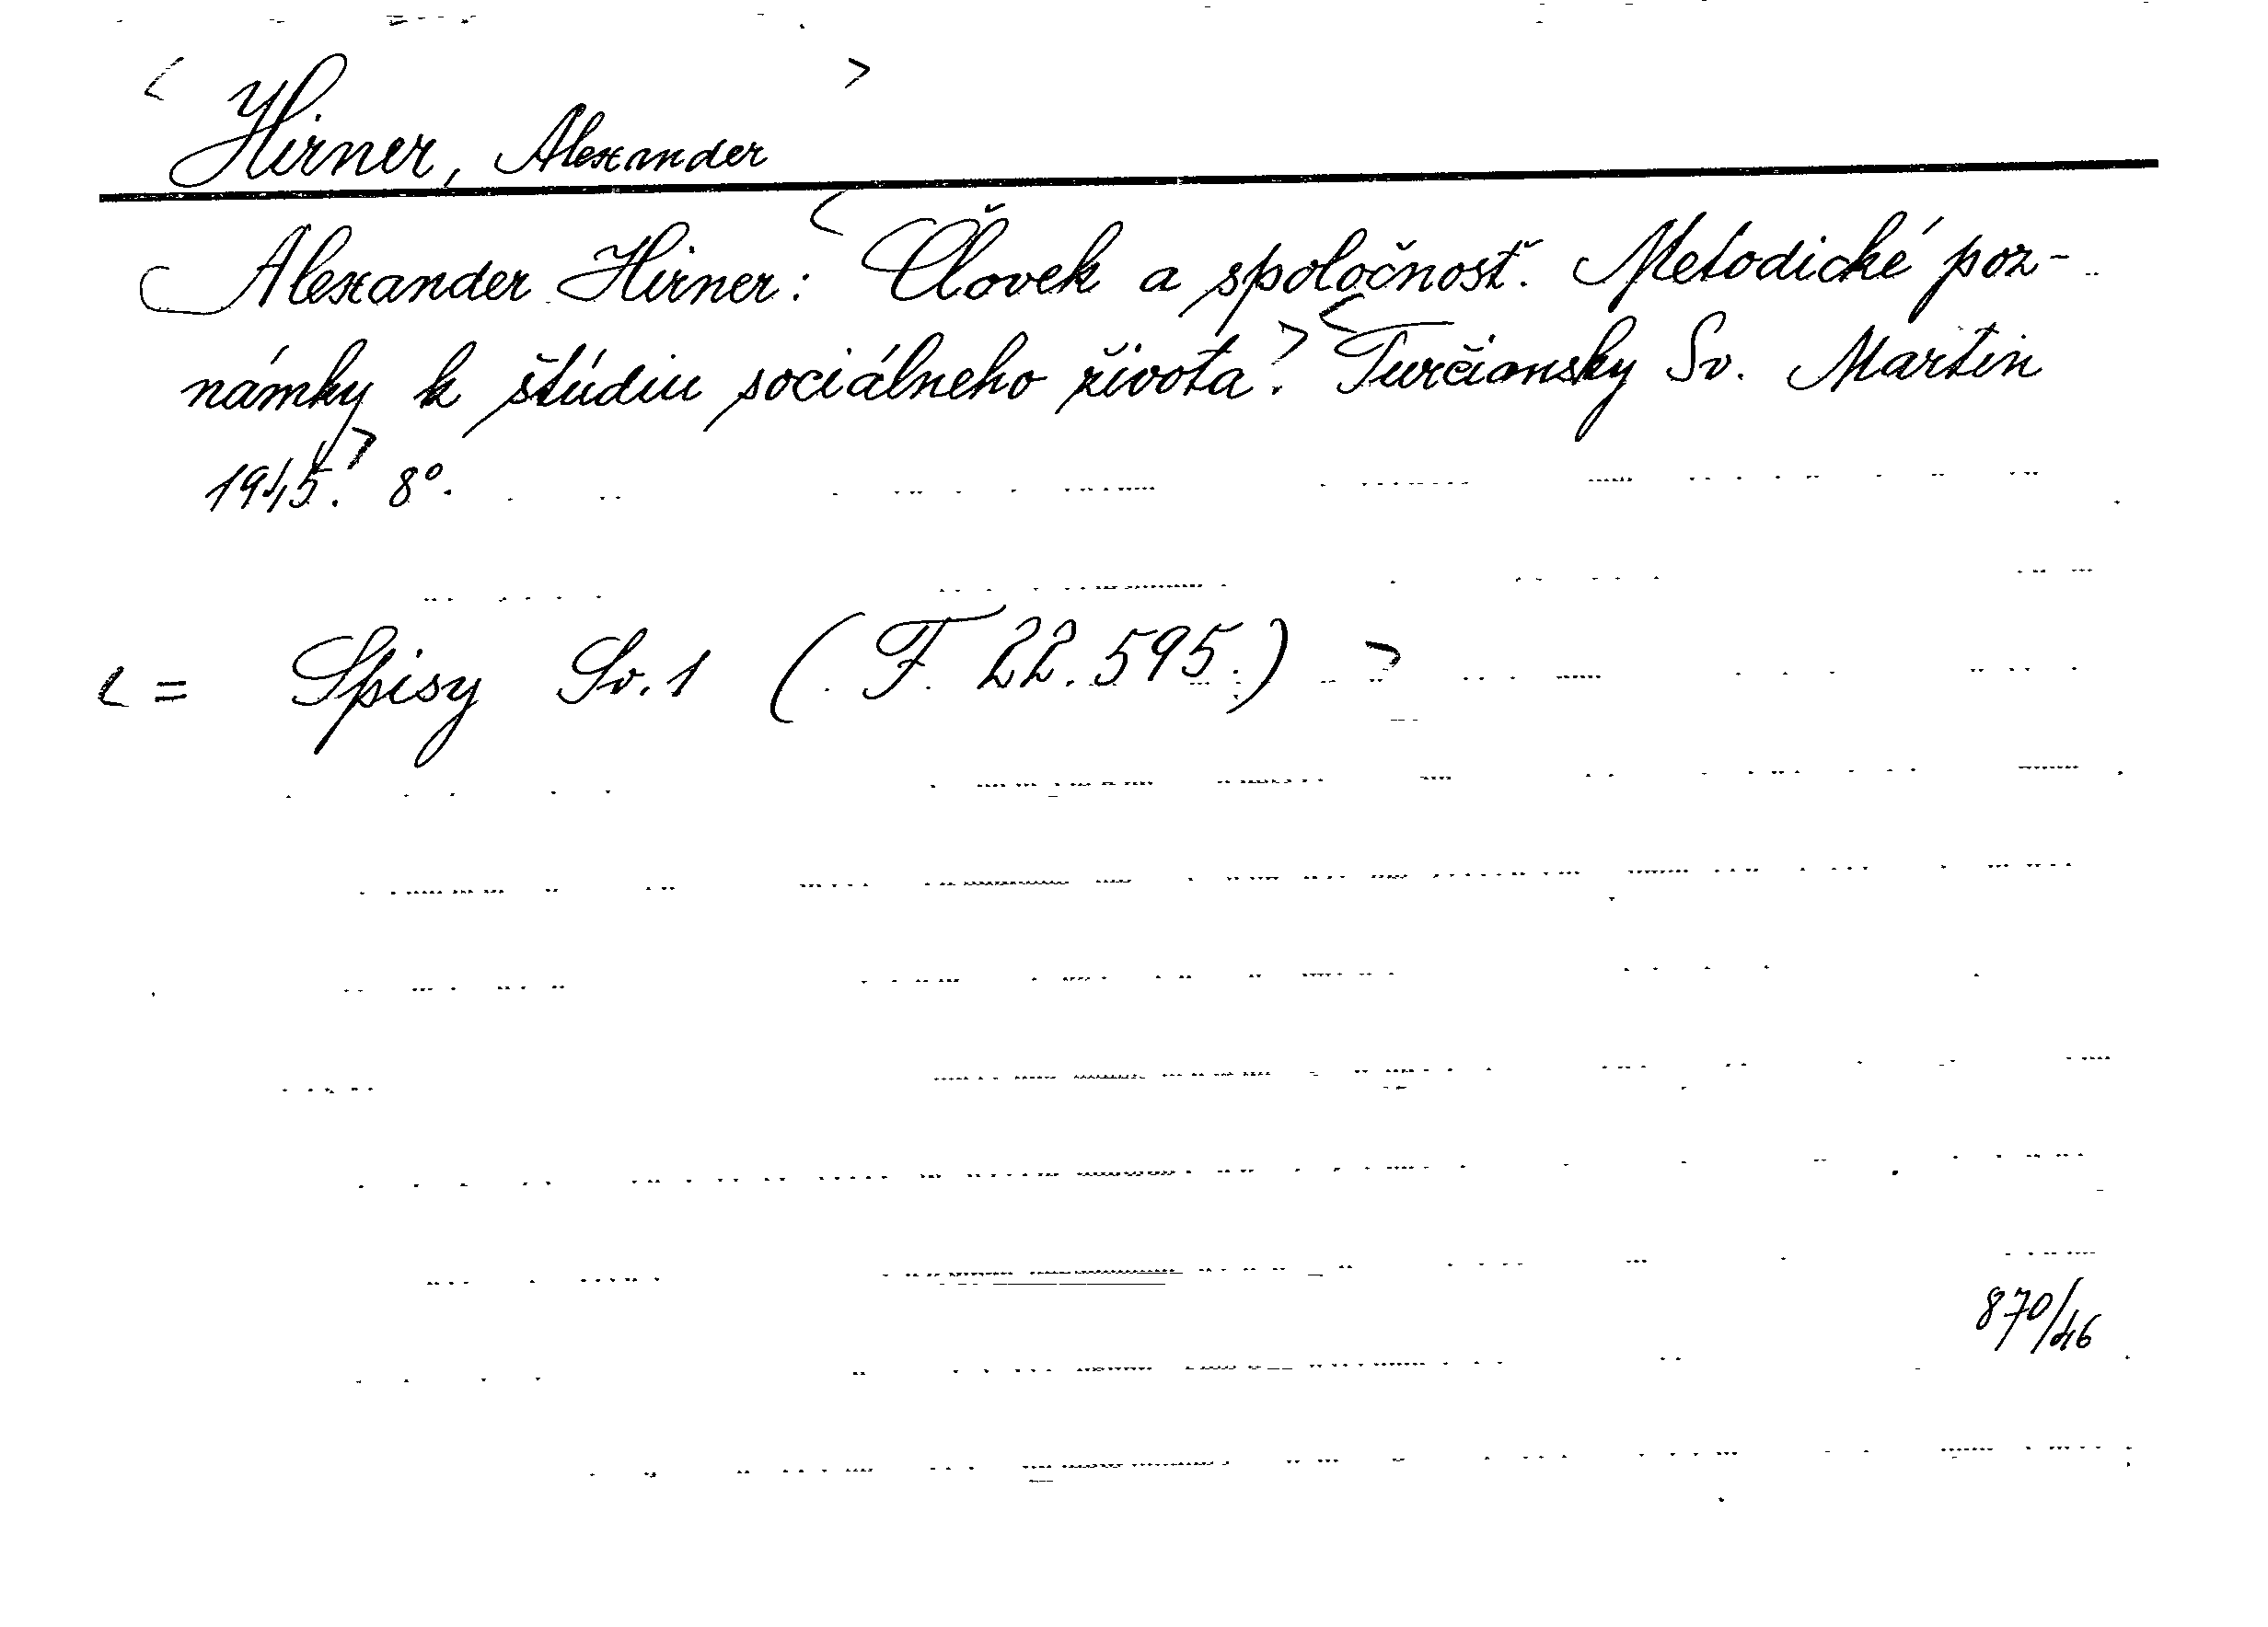 < Hirner, Alexander >
Alexander Hirner: < Človek a spoločnosť. Metodické poz-
námky k štúdiu sociálneho života. > < Turčiansky Sv. Martin
1945. > 8°.
< = Spisy Sv. 1 (F. 22.595.) >
870/46